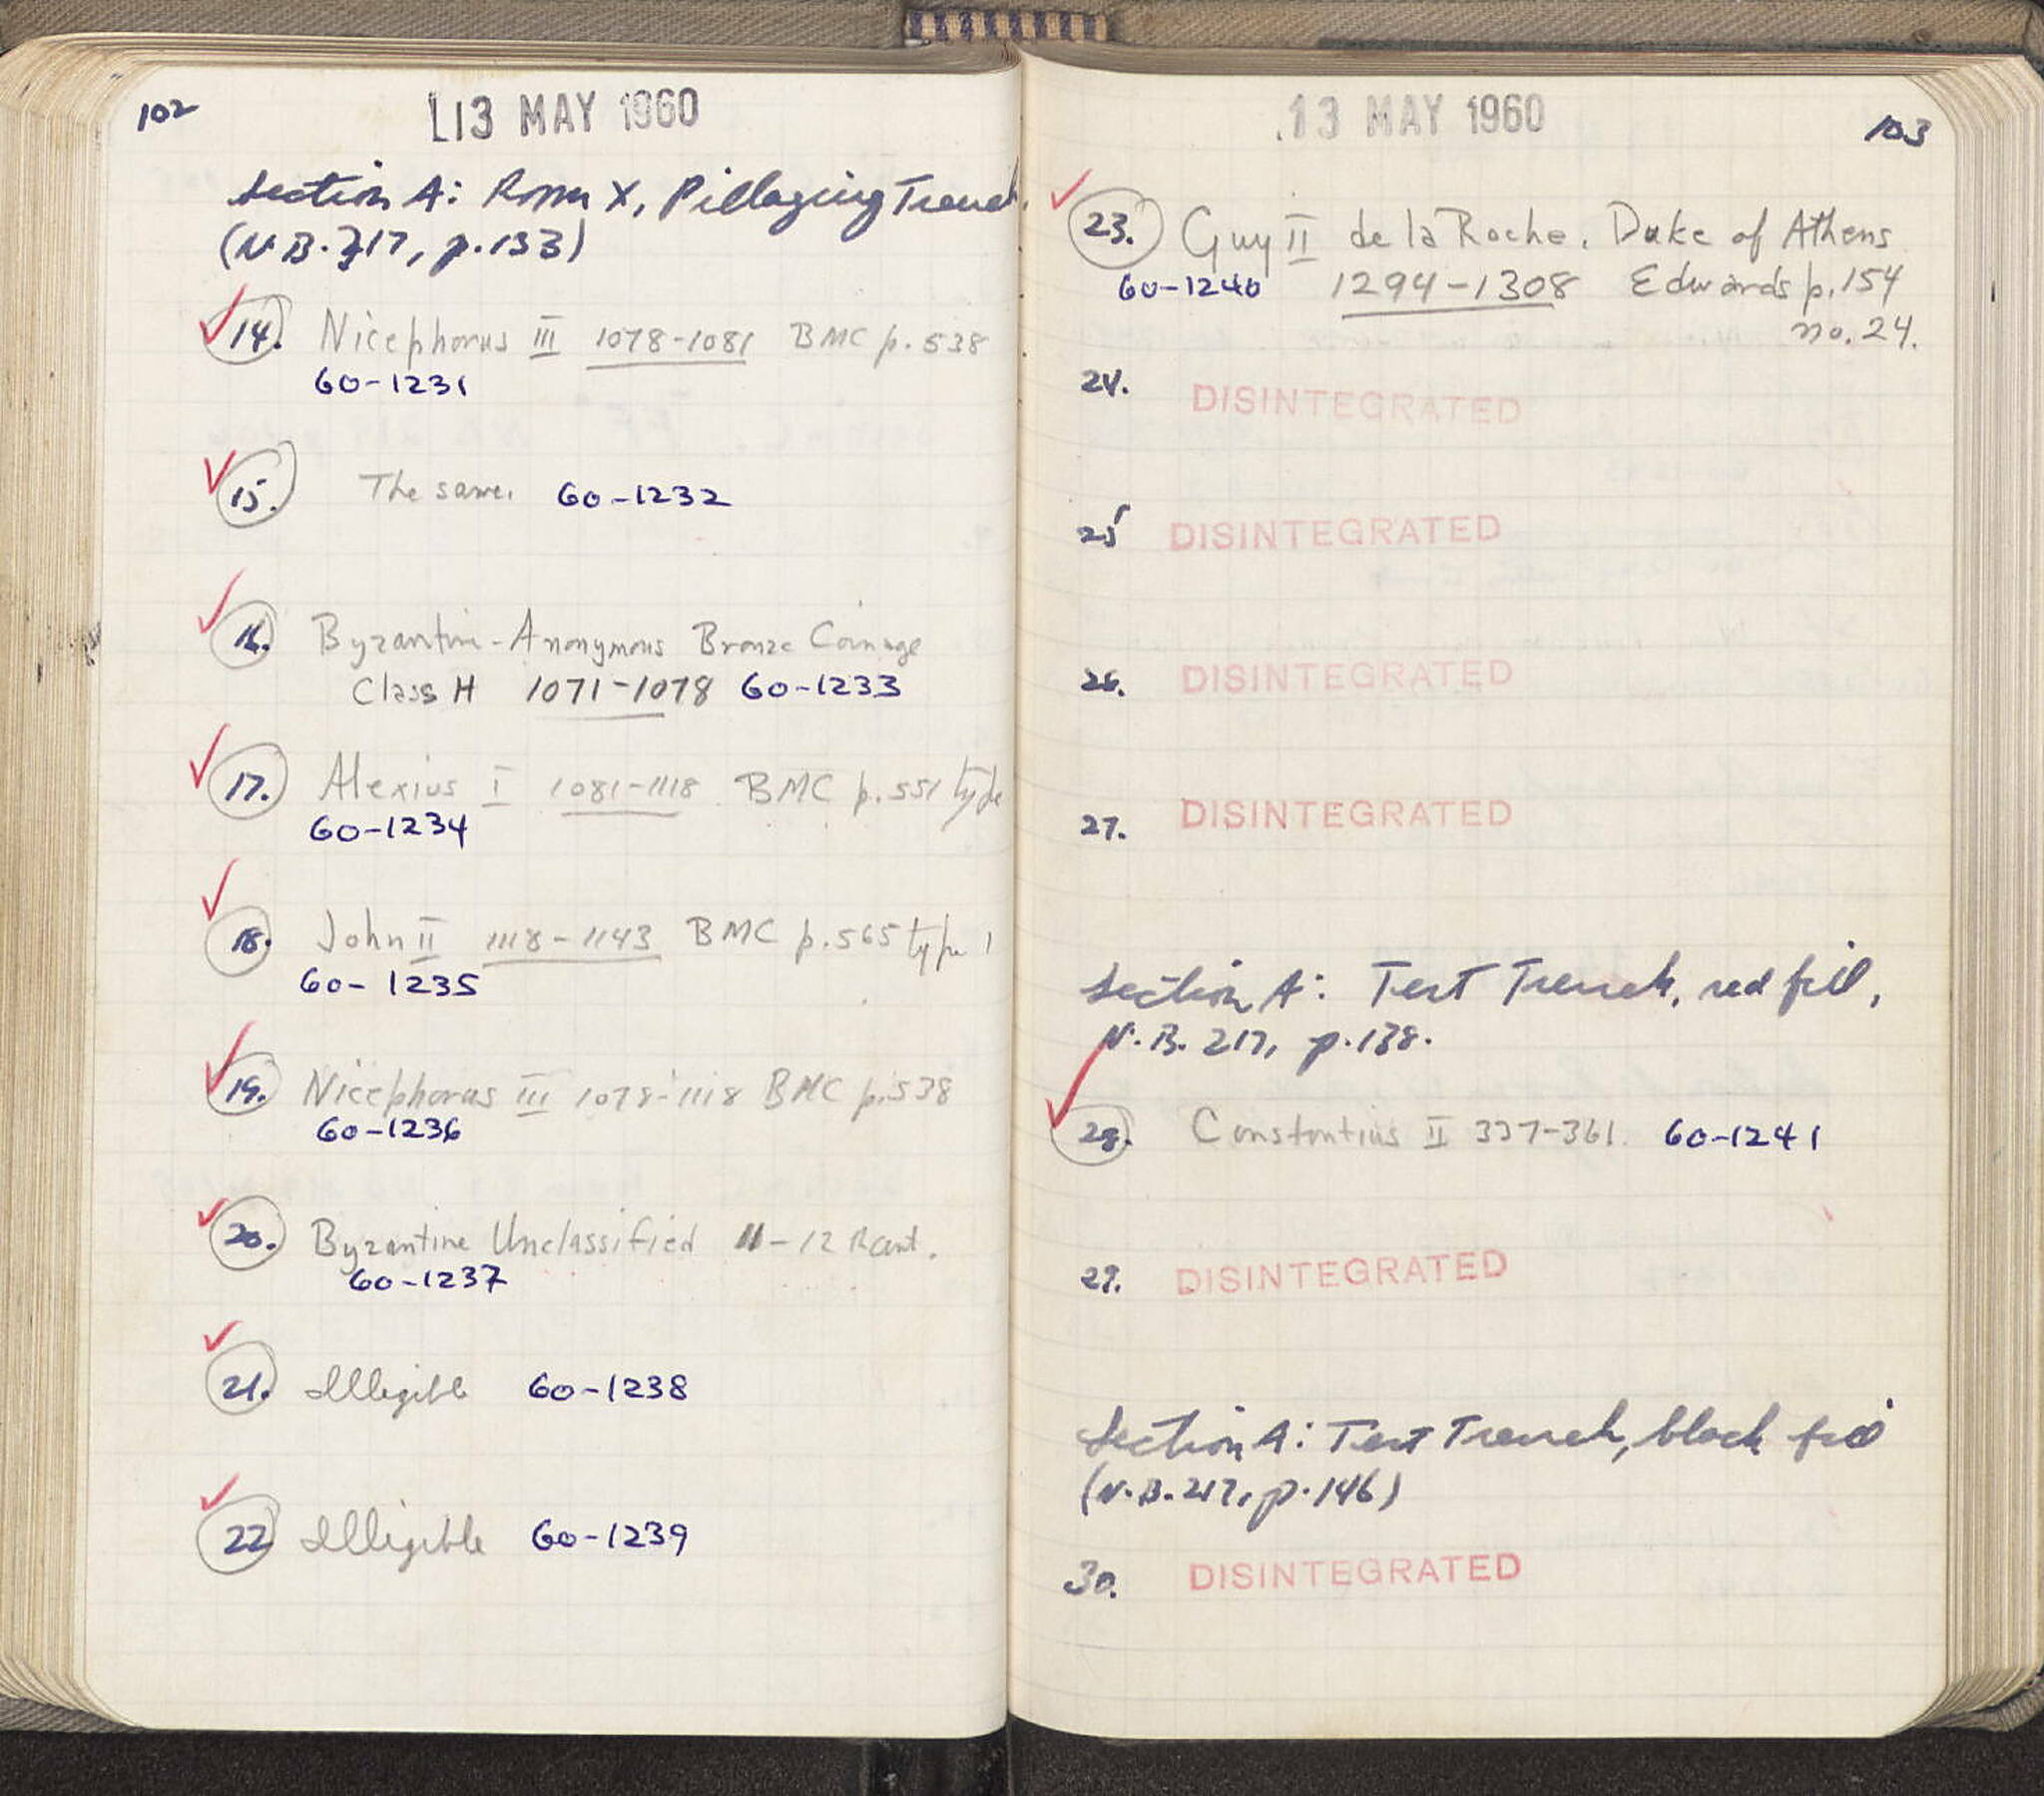 102
13 MAY 1960
Section A: Room X, Pillaging Trench,
(N.B. 217, p.133)
14. Nicephorus III 1078-1081 BMC p.538
60-1231
15. The same. 60-1232
16. Byzantine-Anonymous Bronze Coinage
Class H 1071-1078 60-1233
17. Alexius I 1081-1118 BMC p.551 type
60-1234
18. John II 1118-1143 BMC p.565 type 1
60-1235
19. Nicephorus III 1078-1118 BMC p.538
60-1236
20. Byzantine Unclassified 11-12 cent.
60-1237
21. Illegible 60-1238
22 Illegible 60-1239
13 MAY 1960
103
23. Guy II de la Roche, Duke of Athens
60-1240 1294-1308 Edwards p.154
no. 24.
24. DISINTEGRATED
25 DISINTEGRATED
26. DISINTEGRATED
27. DISINTEGRATED
Section A: Test Trench, red fill,
N.B. 217, p.138.
28. Constantius II 337-361. 60-1241
29. DISINTEGRATED
Section A: Test Trench, black fill
(N.B. 217, p.146)
30. DISINTEGRATED